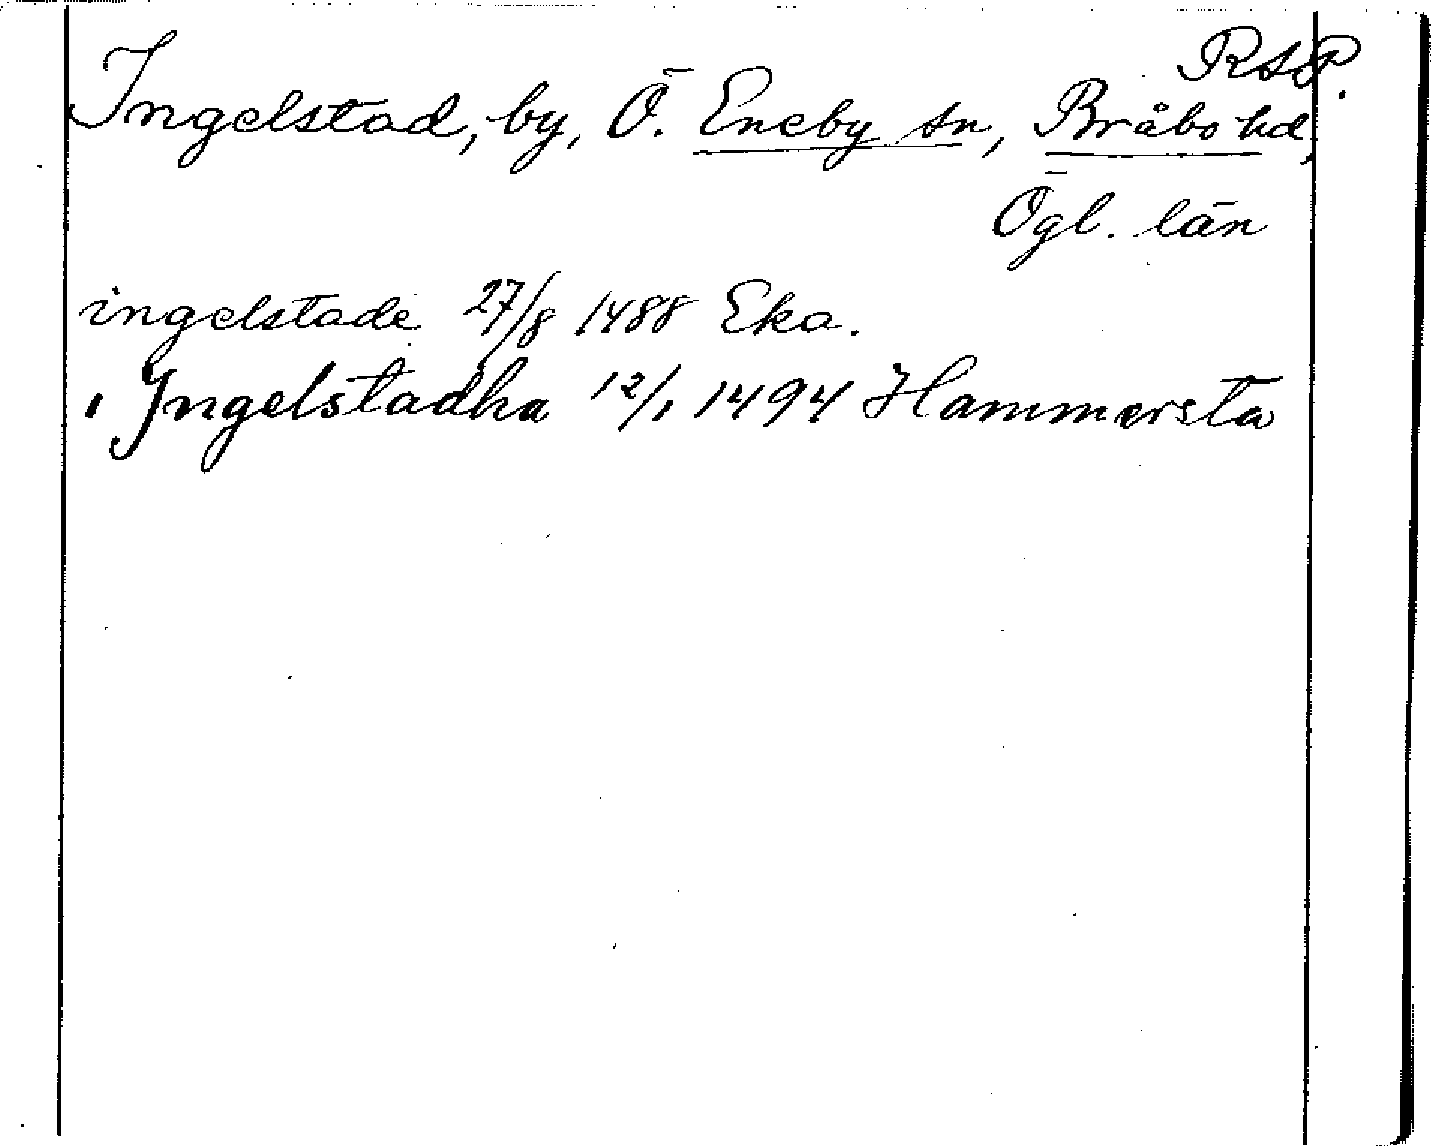 RAP.
Ingelstad, by, Ö. Eneby sn, Bråbo hd,
Ögl. län
ingelstade 27/8 1488 Eka.
i Jngelstadha 12/1 1494 Hammersta